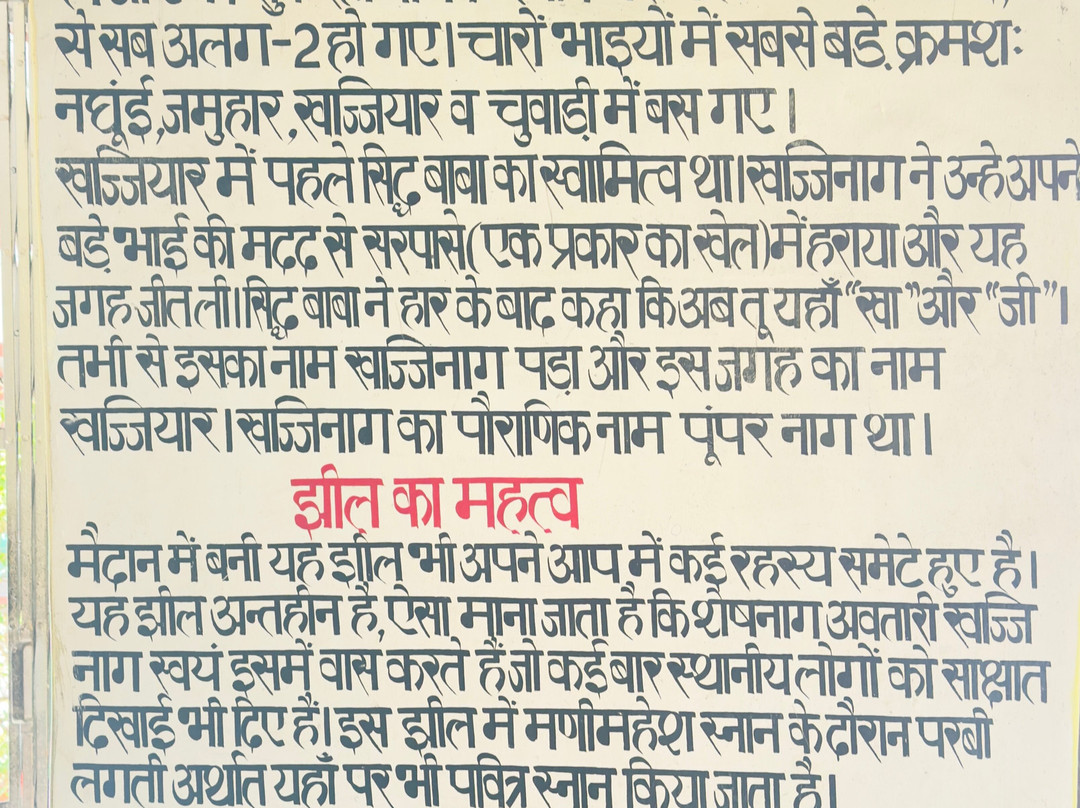 से सब अलग-2 हो गए। चारों भाइयों में सबसे बड़े क्रमशः
नघूंई, जमुहार, खज्जियार व चुवाड़ी में बस गए।
खज्जियार में पहले सिद्ध बाबा का स्वामित्व था। खज्जिनाग ने उन्हे अपने
बड़े भाई की मदद से सरपासे (एक प्रकार का खेल) में हराया और यह
जगह जीत ली। सिद्ध बाबा ने हार के बाद कहा कि अब तू यहाँ “खा” और “जी”।
तभी से इसका नाम खज्जिनाग पड़ा और इस जगह का नाम
खज्जियार। खज्जिनाग का पौराणिक नाम पूंपर नाग था।
झील का महत्व
मैदान में बनी यह झील भी अपने आप में कई रहस्य समेटे हुए है।
यह झील अन्तहीन है, ऐसा माना जाता है कि शेषनाग अवतारी खज्जि
नाग स्वयं इसमें वास करते हैं जो कई बार स्थानीय लोगों को साक्षात
दिखाई भी दिए हैं। इस झील में मणीमहेश स्नान के दौरान परबी
लगती अर्थात यहाँ पर भी पवित्र स्नान किया जाता है।